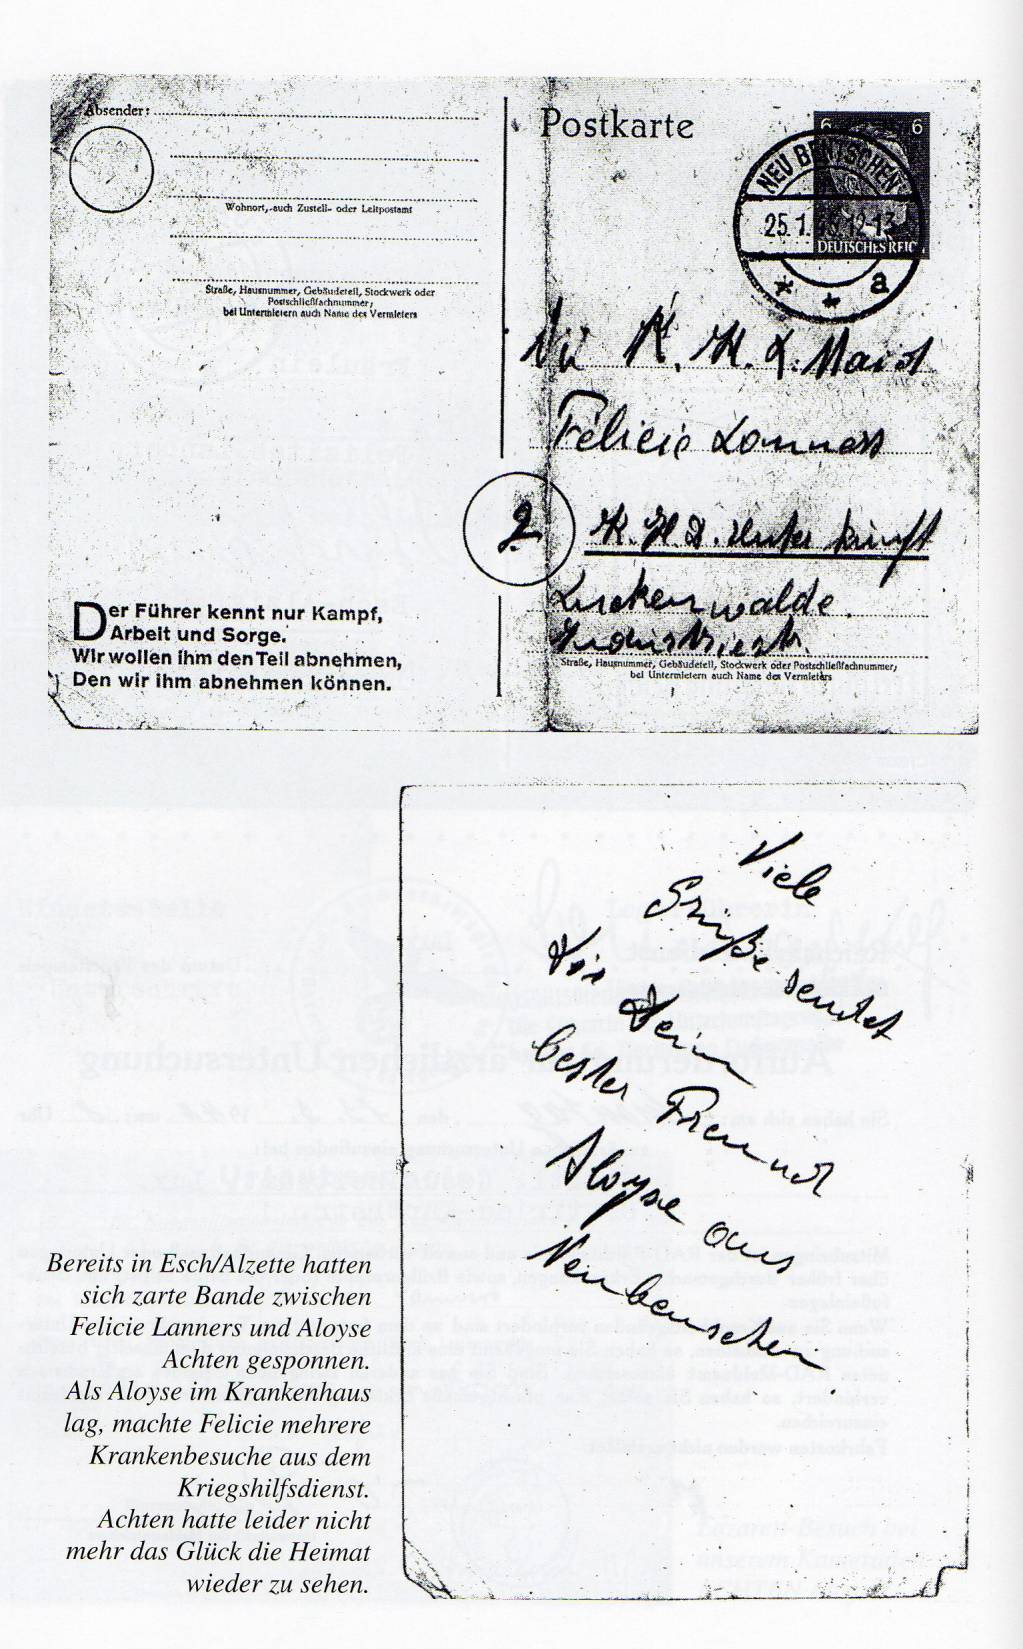 Absender:
Wohnort, auch Zustell- oder Leitpostamt
Straße, Hausnummer, Gebäudeteil, Stockwerk oder
Postschließfachnummer;
bei Untermietern auch Name des Vermieters
Der Führer kennt nur Kampf,
Arbeit und Sorge.
Wir wollen ihm den Teil abnehmen,
Den wir ihm abnehmen können.
Postkarte
6 6
NEU BENTSCHEN
25.1. 12-13
DEUTSCHES REICH
* * a
K. H. D. Maid
Felicie Lanners
K. H. D. Unterkunft
Luckenwalde
Industriestr.
Straße, Hausnummer, Gebäudeteil, Stockwerk oder Postschließfachnummer;
bei Untermietern auch Name des Vermieters
Viele
Grüße sendet
Dir Dein
bester Freund
Aloyse aus
Neubenschen
Bereits in Esch/Alzette hatten
sich zarte Bande zwischen
Felicie Lanners und Aloyse
Achten gesponnen.
Als Aloyse im Krankenhaus
lag, machte Felicie mehrere
Krankenbesuche aus dem
Kriegshilfsdienst.
Achten hatte leider nicht
mehr das Glück die Heimat
wieder zu sehen.